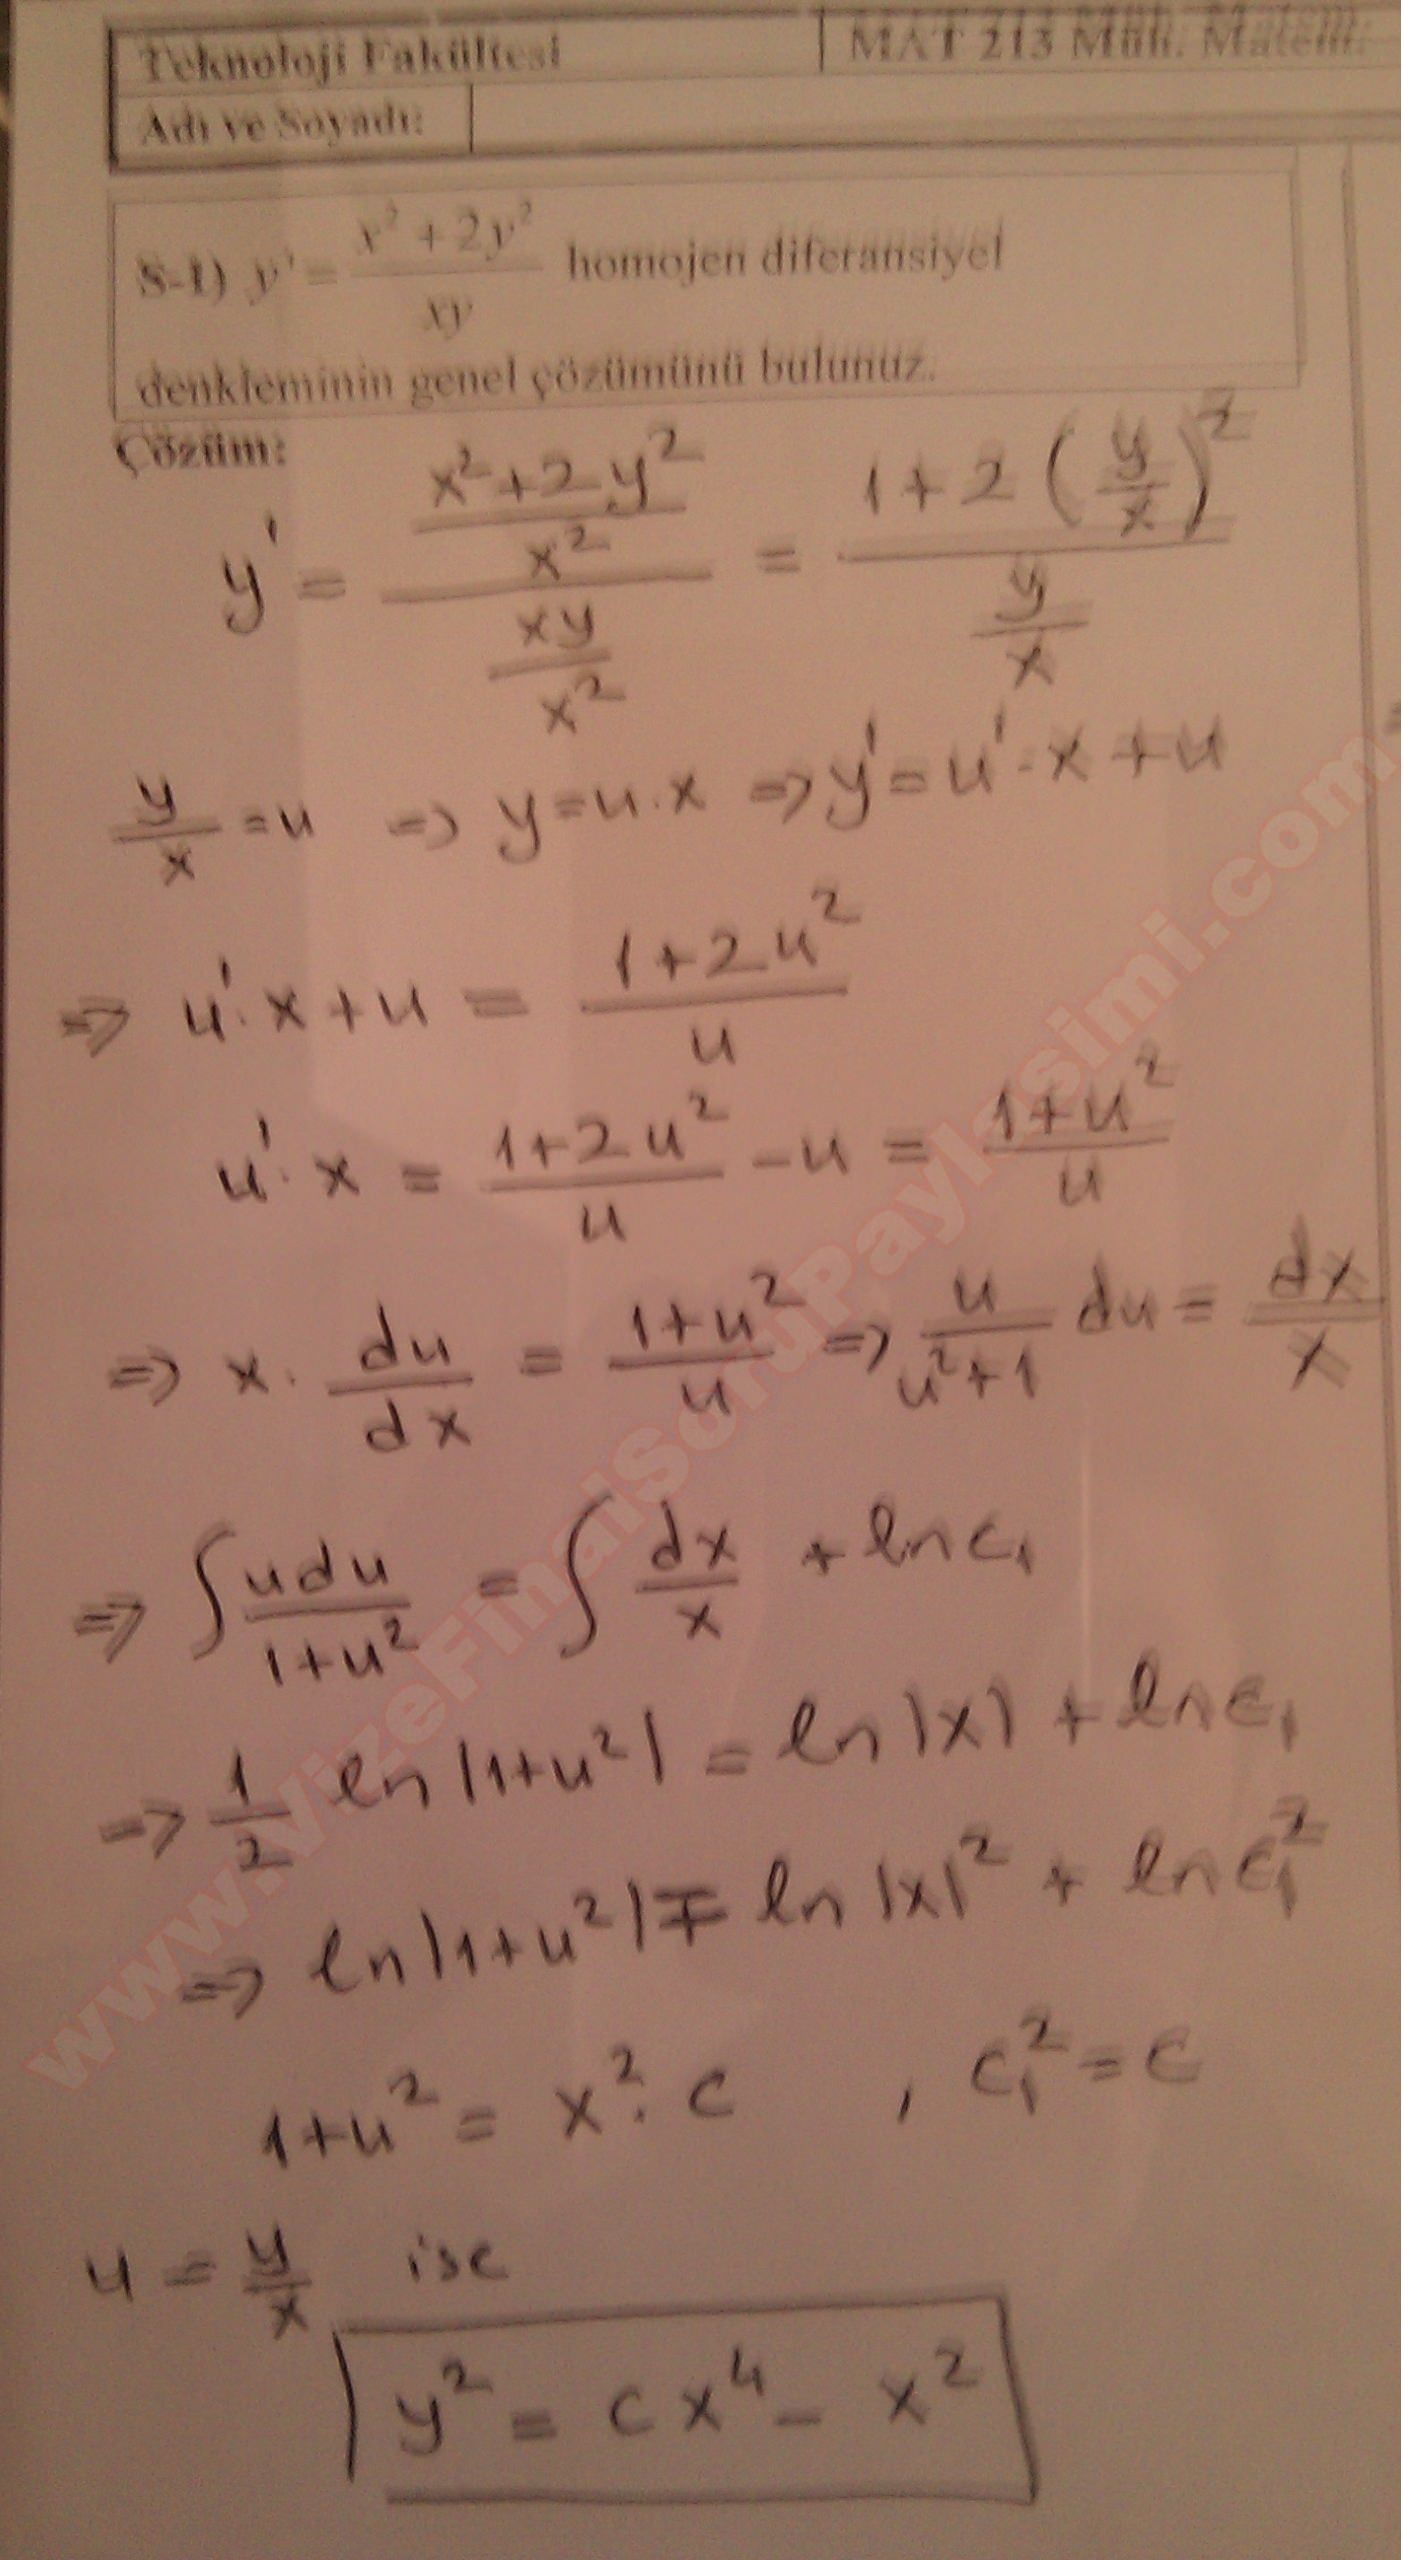 Teknoloji Fakültesi MAT 213 Müh. Matem.
Adı ve Soyadı:
S-1) y' = (x² + 2y²)/(xy) homojen diferansiyel
denkleminin genel çözümünü bulunuz.
Çözüm:
y' = ((x²+2y²)/x²)/((xy)/x²) = (1+2(y/x)²)/(y/x)
y/x = u => y = u.x => y' = u'.x + u
=> u'.x + u = (1+2u²)/u
u'.x = (1+2u²)/u - u = (1+u²)/u
=> x. du/dx = (1+u²)/u => u/(u²+1) du = dx/x
=> ∫ udu/(1+u²) = ∫ dx/x + ln c₁
=> 1/2 ln|1+u²| = ln|x| + ln c₁
=> ln|1+u²| = ln|x|² + ln c₁²
1+u² = x².c , c₁² = c
u = y/x ise
y² = cx⁴ - x²
www.VizeFinalSoruPaylasimi.com